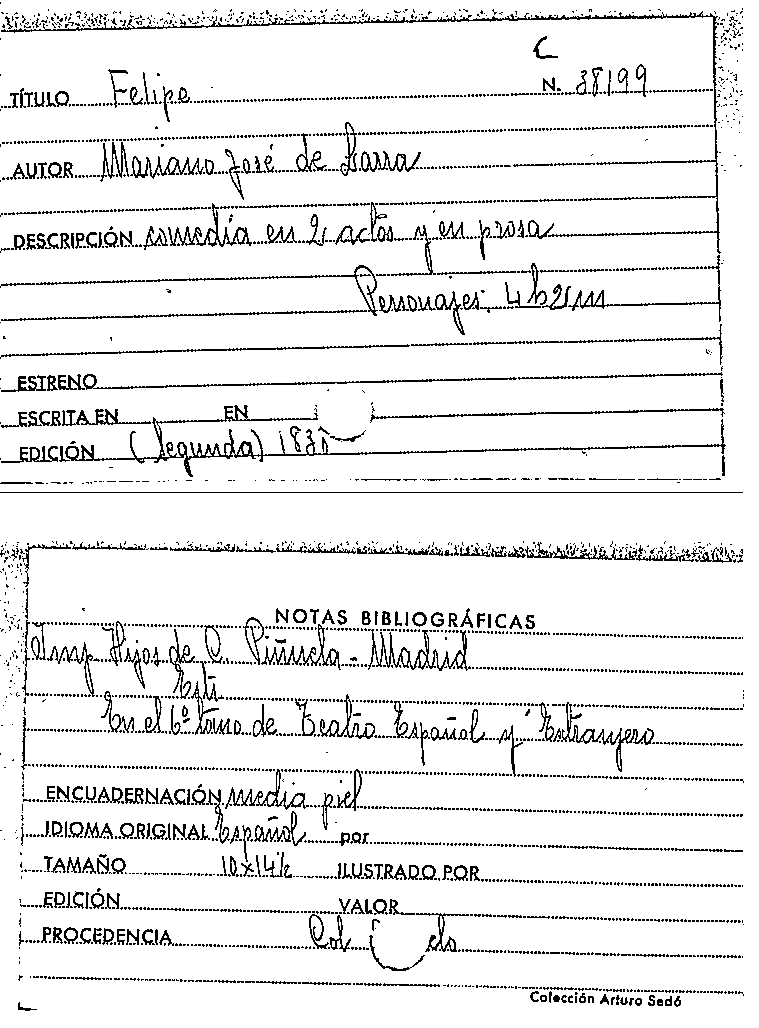 C
TÍTULO Felipe N. 38199
AUTOR Mariano José de Larra
DESCRIPCIÓN comedia en 2 actos y en prosa
Personajes: 4 h 2 m
ESTRENO
ESCRITA EN EN
EDICIÓN (Segunda) 183
NOTAS BIBLIOGRÁFICAS
Imp Hijos de C. Piñuela - Madrid
En el 6º tomo de Teatro Español y Extranjero
ENCUADERNACIÓN media piel
IDIOMA ORIGINAL Español por
TAMAÑO 10x14½ ILUSTRADO POR
EDICIÓN VALOR
PROCEDENCIA Col
Colección Arturo Sedó